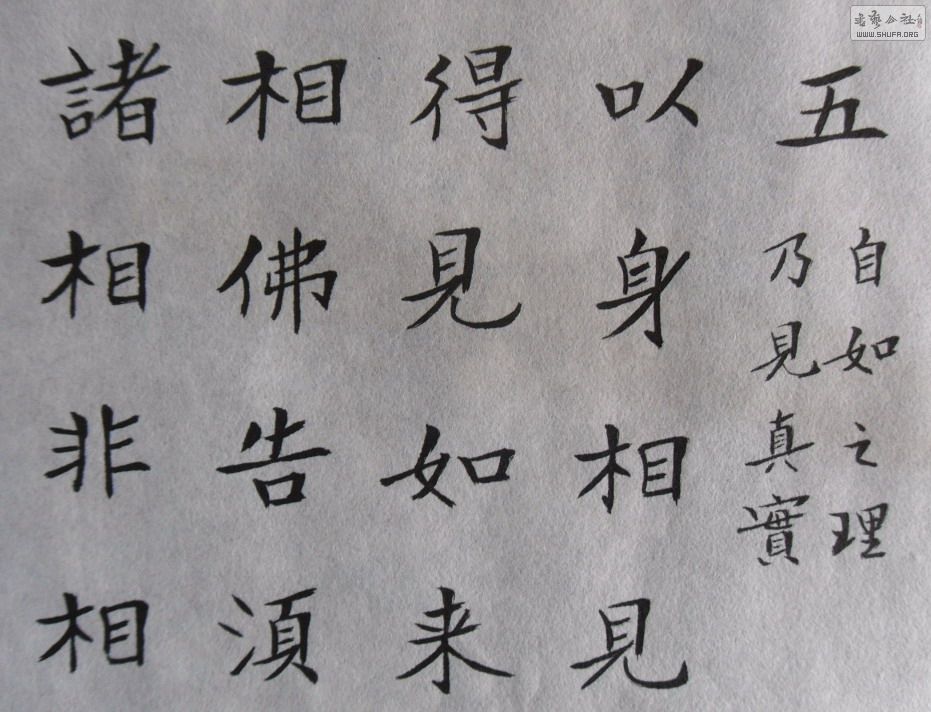 五
自如之理
乃見真實
以身相見
得見如来
相佛告湏
諸相非相
書藝公社
WWW.SHUFA.ORG